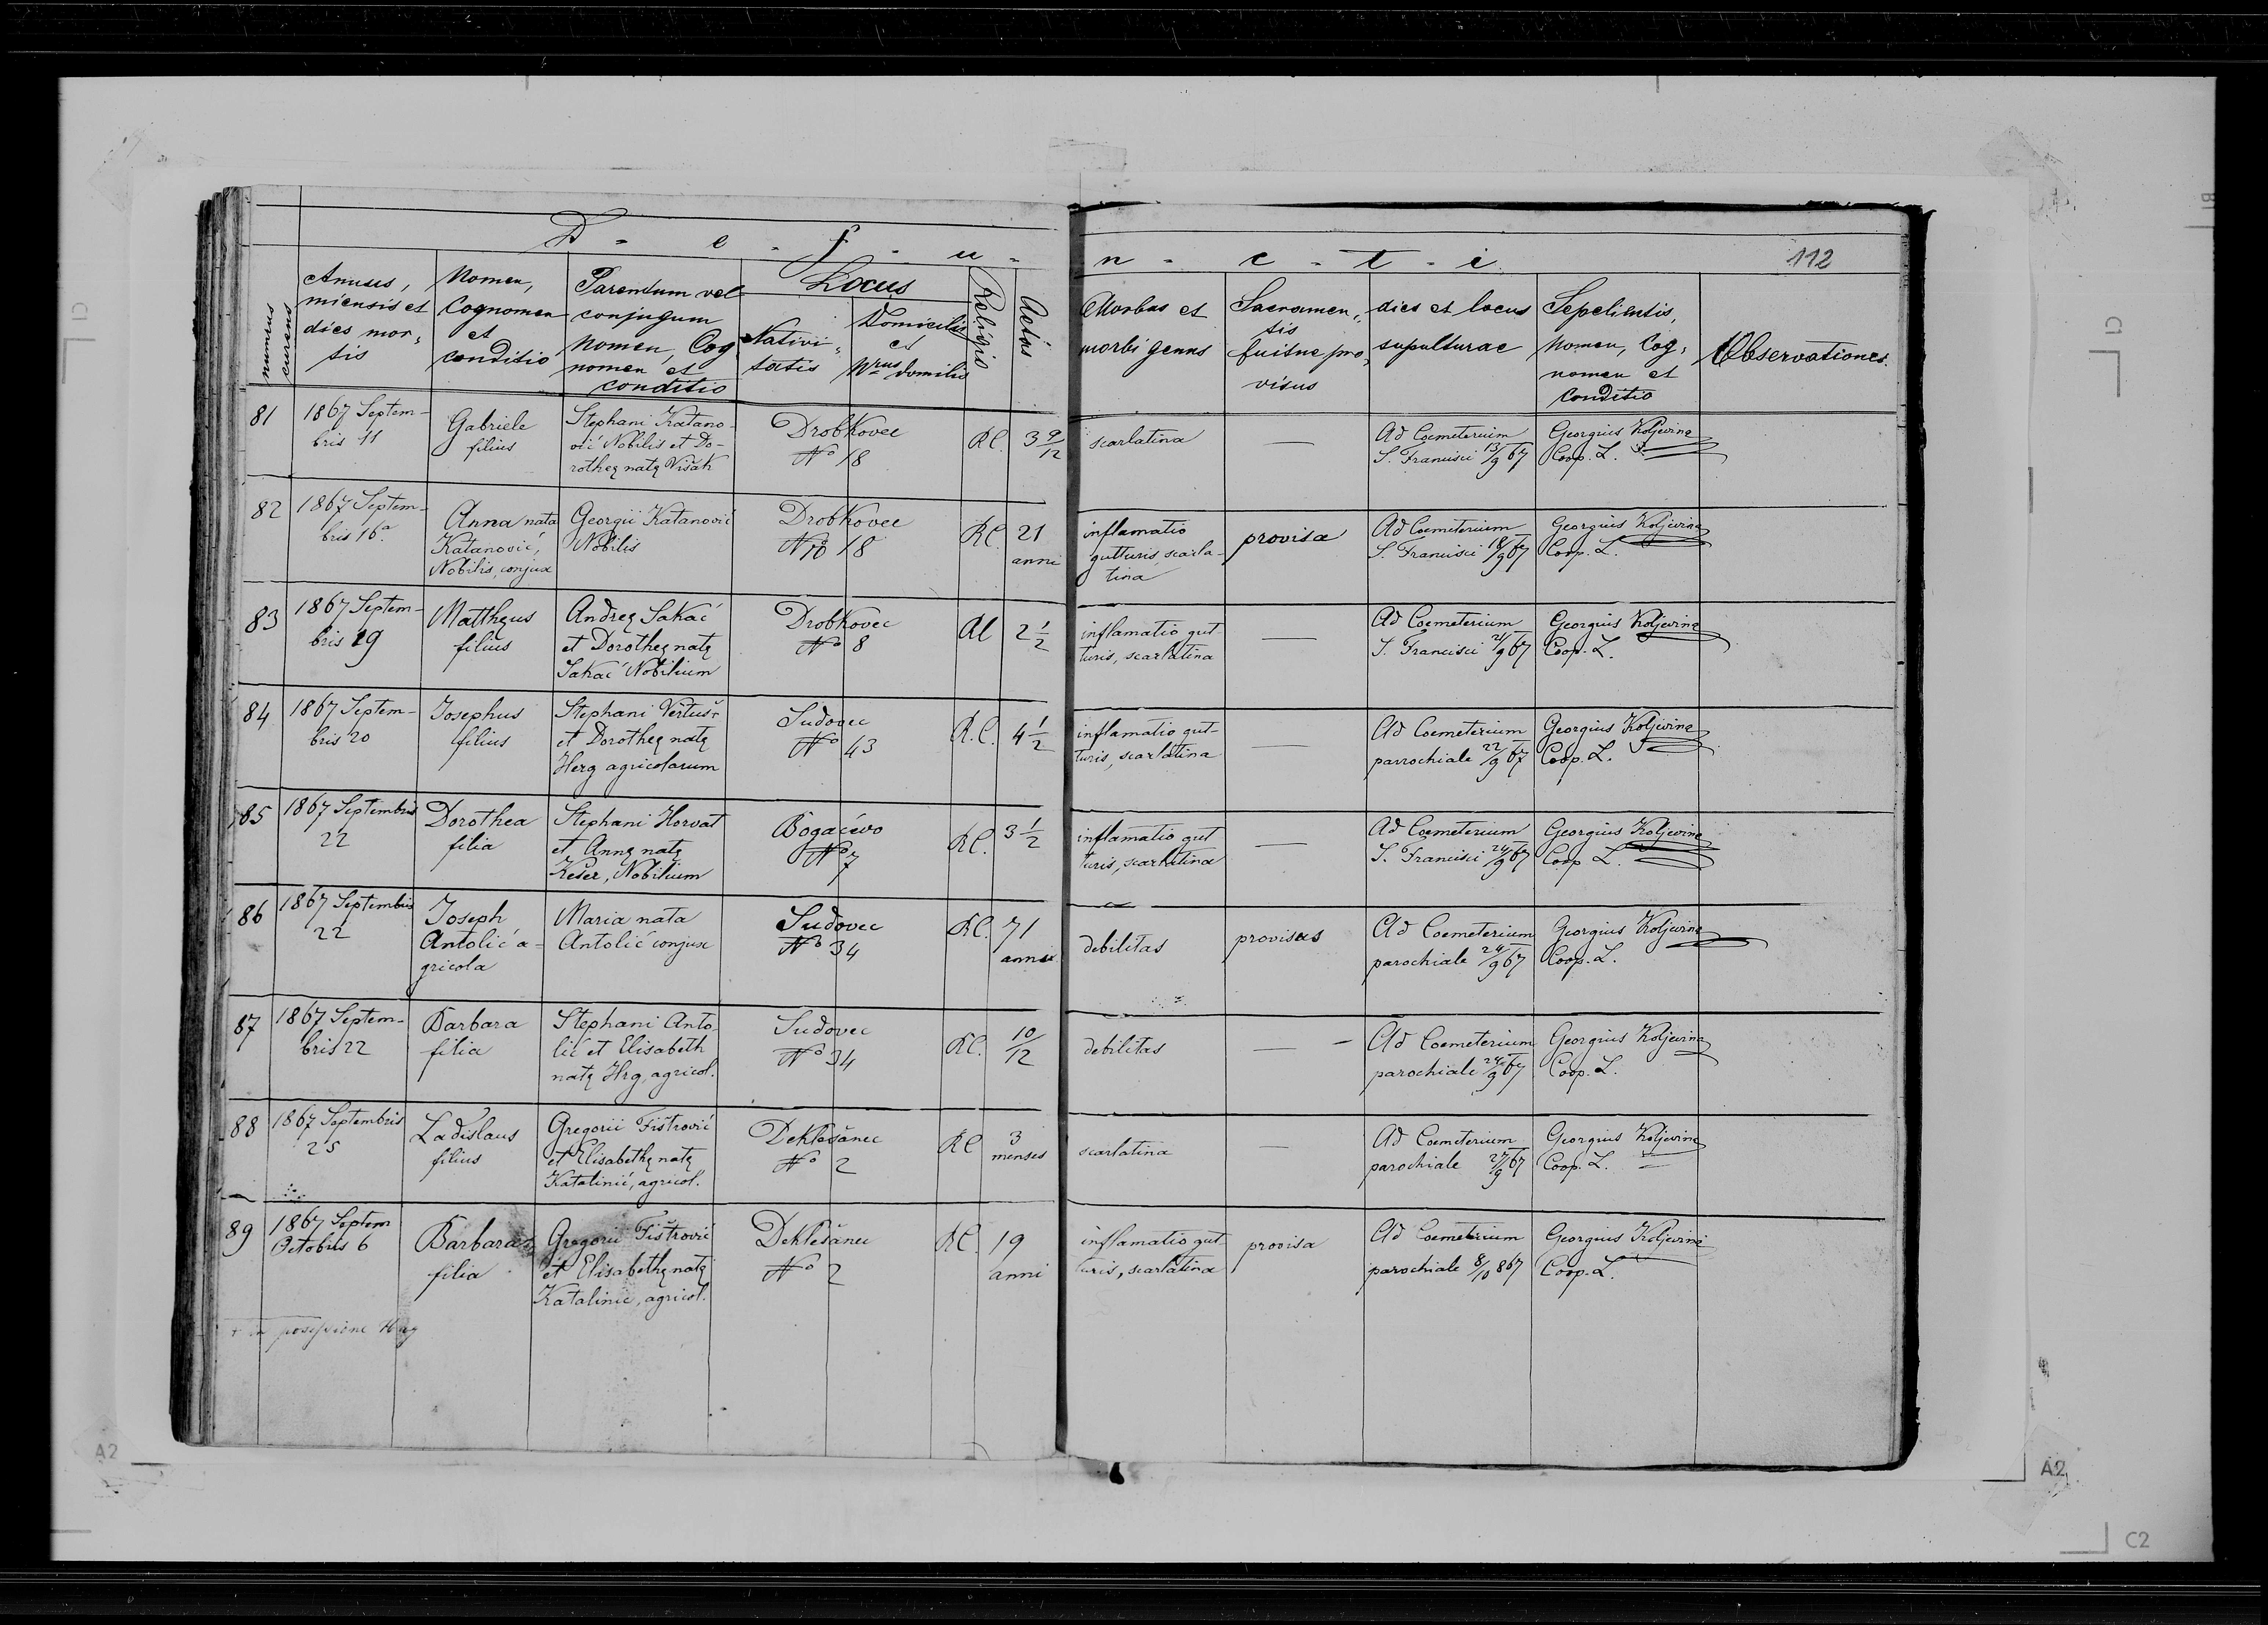 D - e - f - u - n - c - t - i
112
numerus currens
Annus, miensis et dies mor, tis
Nomen, Cognomen et conditio
Parentum vel conjugum Nomen, Cog nomen et conditio
Locus
Nativi, tatis
Domicilij et Nrus domilis
Religio
Aetas
Morbus et morbi genus
Sacramen, tis fuitne pro, visus
dies et locus supulturae
Sepelientis, Nomen, Cog, nomen et Conditio
Observationes.
81
1867 Septem-
bris 11
Gabriele
filius
Stephani Katano-
vić Nobilis et Do-
rotheę natę Višák
Drobkovec
No 18
RC.
3 9/12
scarlatina
—
Ad Coemeterium
S. Francisci 13/9 67
Georgius Koljevina
Coop. L.
82
1867 Septem-
bris 16a
Anna nata
Katanović,
Nobilis, conjux
Georgii Katanović
Nobilis
Drobkovec
No 18
RC.
21
anni
inflamatio
gutturis, scarla-
tina
provisa
Ad Coemeterium
S. Francisci 18/9 67
Georgius Koljevina
Coop. L.
83
1867 Septem-
bris 19
Mattheus
filius
Andreę Sakać
et Dorotheę natę
Sakać Nobilium
Drobkovec
No 8
RC
2 1/2
inflamatio gut-
turis, scarlatina
—
Ad Coemeterium
S. Francisci 21/9 67
Georgius Koljevina
Coop. L.
84
1867 Septem-
bris 20
Josephus
filius
Stephani
et Dorotheę natę
Herg agricolarum
Sudovec
No 43
R.C.
4 1/2
inflamatio gut-
turis, scarlatina
—
Ad Coemeterium
parrochiale 22/9 67
Georgius Koljevina
Coop. L.
85
1867 Septembris
22
Dorothea
filia
Stephani Horvat
et Annę natę
Kešer, Nobilium
Bogačevo
No 7
RC.
3 1/2
inflamatio gut
turis, scarlatina
—
Ad Coemeterium
S. Francisci 24/9 67
Georgius Koljevina
Coop L.
86
1867 Septembris
22
Joseph
Antolić a-
gricola
Maria nata
Antolić conjux
Sudovec
No 34
RC.
71
anni
debilitas
provisus
Ad Coemeterium
parochiale 24/9 67
Georgius Koljevina
Coop. L.
87
1867 Septem-
bris 22
Barbara
filia
Stephani Anto-
lić et Elisabeth
natę Hrg, agricol.
Sudovec
No 34
RC.
10/12
debilitas
— -
Ad Coemeterium
parochiale 24/9 67
Georgius Koljevina
Coop. L.
88
1867 Septembris
25
Ladislaus
filius
Gregorii Fištrović
et Elisabethę natę
Katalinić, agricol.
Deklešanec
No 2
RC
3
menses
scarlatina
—
Ad Coemeterium
parochiale 27/9 67
Georgius Koljevina
Coop. L.
89
1867 Septem
Octobris 6
Barbara
filia
Gregorii Fištrović
et Elisabethę natę
Katalinic, agricol.
Deklešanec
No 2
RC.
19
anni
inflamatio gut
turis, scarlatina
provisa
Ad Coemeterium
parochiale 8/10 867
Georgius Koljevina
Coop. L.
+ in possessione
C1
C1
B1
A2
A2
C2